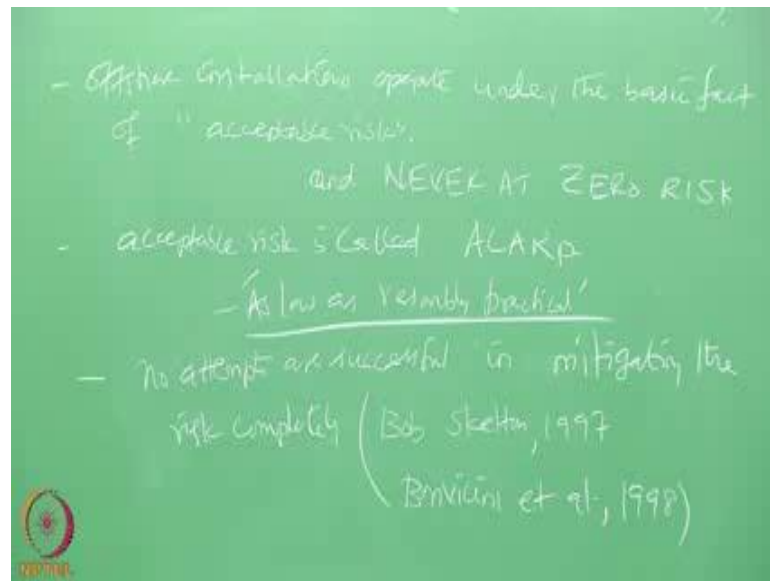 - Offshore installations operate under the basic fact
of "acceptable risk".
and NEVER AT ZERO RISK
- acceptable risk is called ALARP
- 'As low as resonbly practical'
- no attempt are successful in mitigating the
risk completely (Bob Skelton, 1997
Bonvicini et al., 1998)
NPTEL